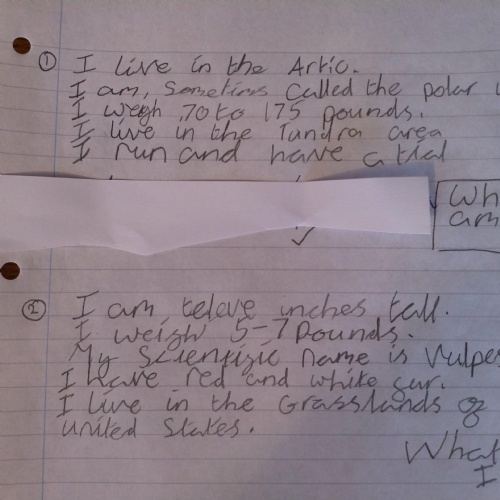 ① I live in the Artic.
I am, Sometims called the polar
I weigh 70 to 175 pounds.
I live in the Tundra area
I run and have a tial
Wh
am
② I am televe inches tall.
I weigh 5-7 pounds.
My Scientific name is Vulpes
I have red and white fur.
I live in the Grasslands of
United States.
What
I